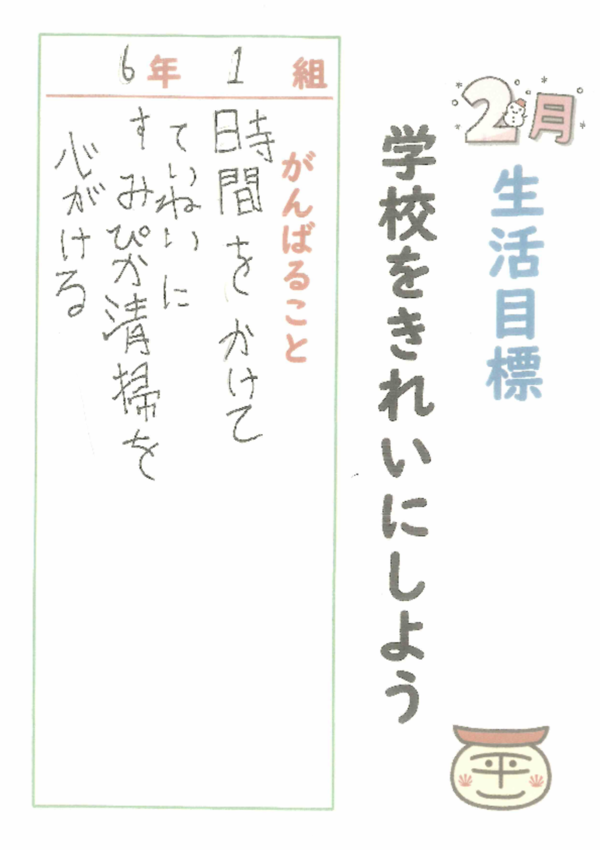 2月
生活目標
学校をきれいにしよう
6年 1組
がんばること
時間をかけて
ていねいに
すみぴか清掃を
心がける